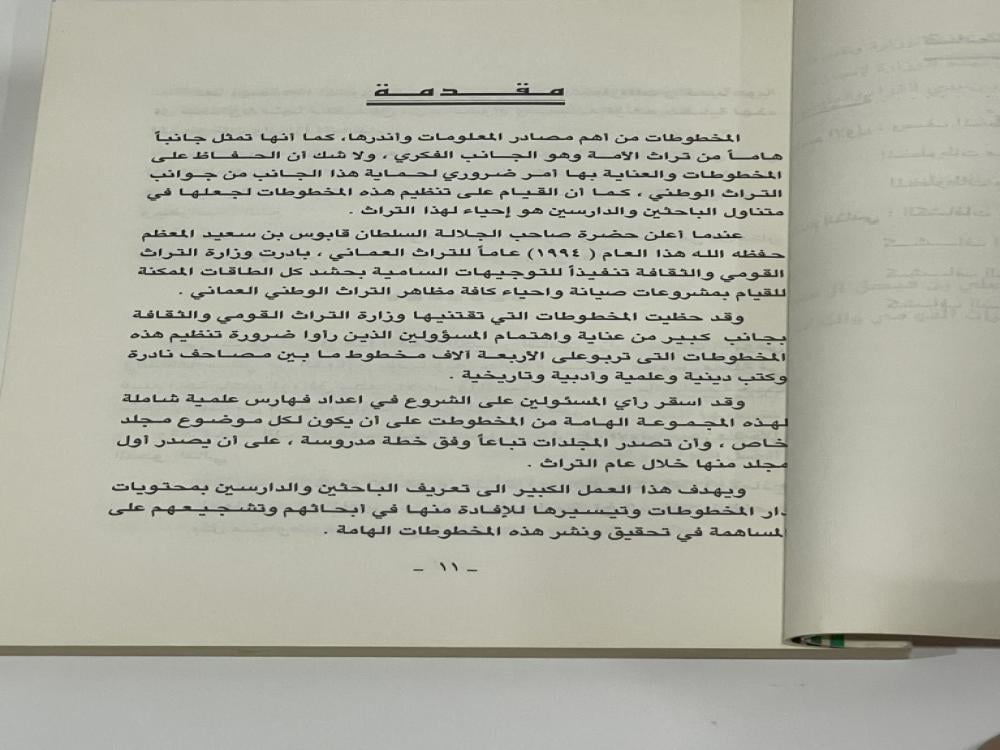 مقدمة
المخطوطات من أهم مصادر المعلومات وأندرها، كما أنها تمثل جانباً
هاماً من تراث الأمة وهو الجانب الفكري ، ولا شك أن الحفاظ على
المخطوطات والعناية بها أمر ضروري لحماية هذا الجانب من جوانب
التراث الوطني ، كما أن القيام على تنظيم هذه المخطوطات لجعلها في
متناول الباحثين والدارسين هو إحياء لهذا التراث .
عندما أعلن حضرة صاحب الجلالة السلطان قابوس بن سعيد المعظم
حفظه الله هذا العام ( ١٩٩٤) عاماً للتراث العماني ، بادرت وزارة التراث
القومي والثقافة تنفيذاً للتوجيهات السامية بحشد كل الطاقات الممكنة
للقيام بمشروعات صيانة واحياء كافة مظاهر التراث الوطني العماني .
وقد حظيت المخطوطات التي تقتنيها وزارة التراث القومي والثقافة
بجانب كبير من عناية واهتمام المسؤولين الذين رأوا ضرورة تنظيم هذه
المخطوطات التى تربوعلى الأربعة آلاف مخطوط ما بين مصاحف نادرة
وكتب دينية وعلمية وأدبية وتاريخية .
وقد اسقر رأي المسئولين على الشروع في اعداد فهارس علمية شاملة
لهذه المجموعة الهامة من المخطوطت على أن يكون لكل موضوع مجلد
خاص ، وأن تصدر المجلدات تباعاً وفق خطة مدروسة ، على أن يصدر أول
مجلد منها خلال عام التراث .
ويهدف هذا العمل الكبير الى تعريف الباحثين والدارسين بمحتويات
دار المخطوطات وتيسيرها للإفادة منها في أبحاثهم وتشجيعهم على
المساهمة في تحقيق ونشر هذه المخطوطات الهامة .
- ١١ -